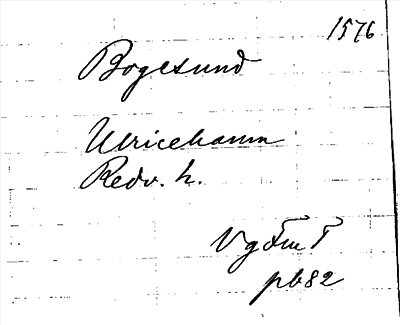 1576
Bogesund
Ulricehamn
Redv. h.
Vg Fm T
pb 82